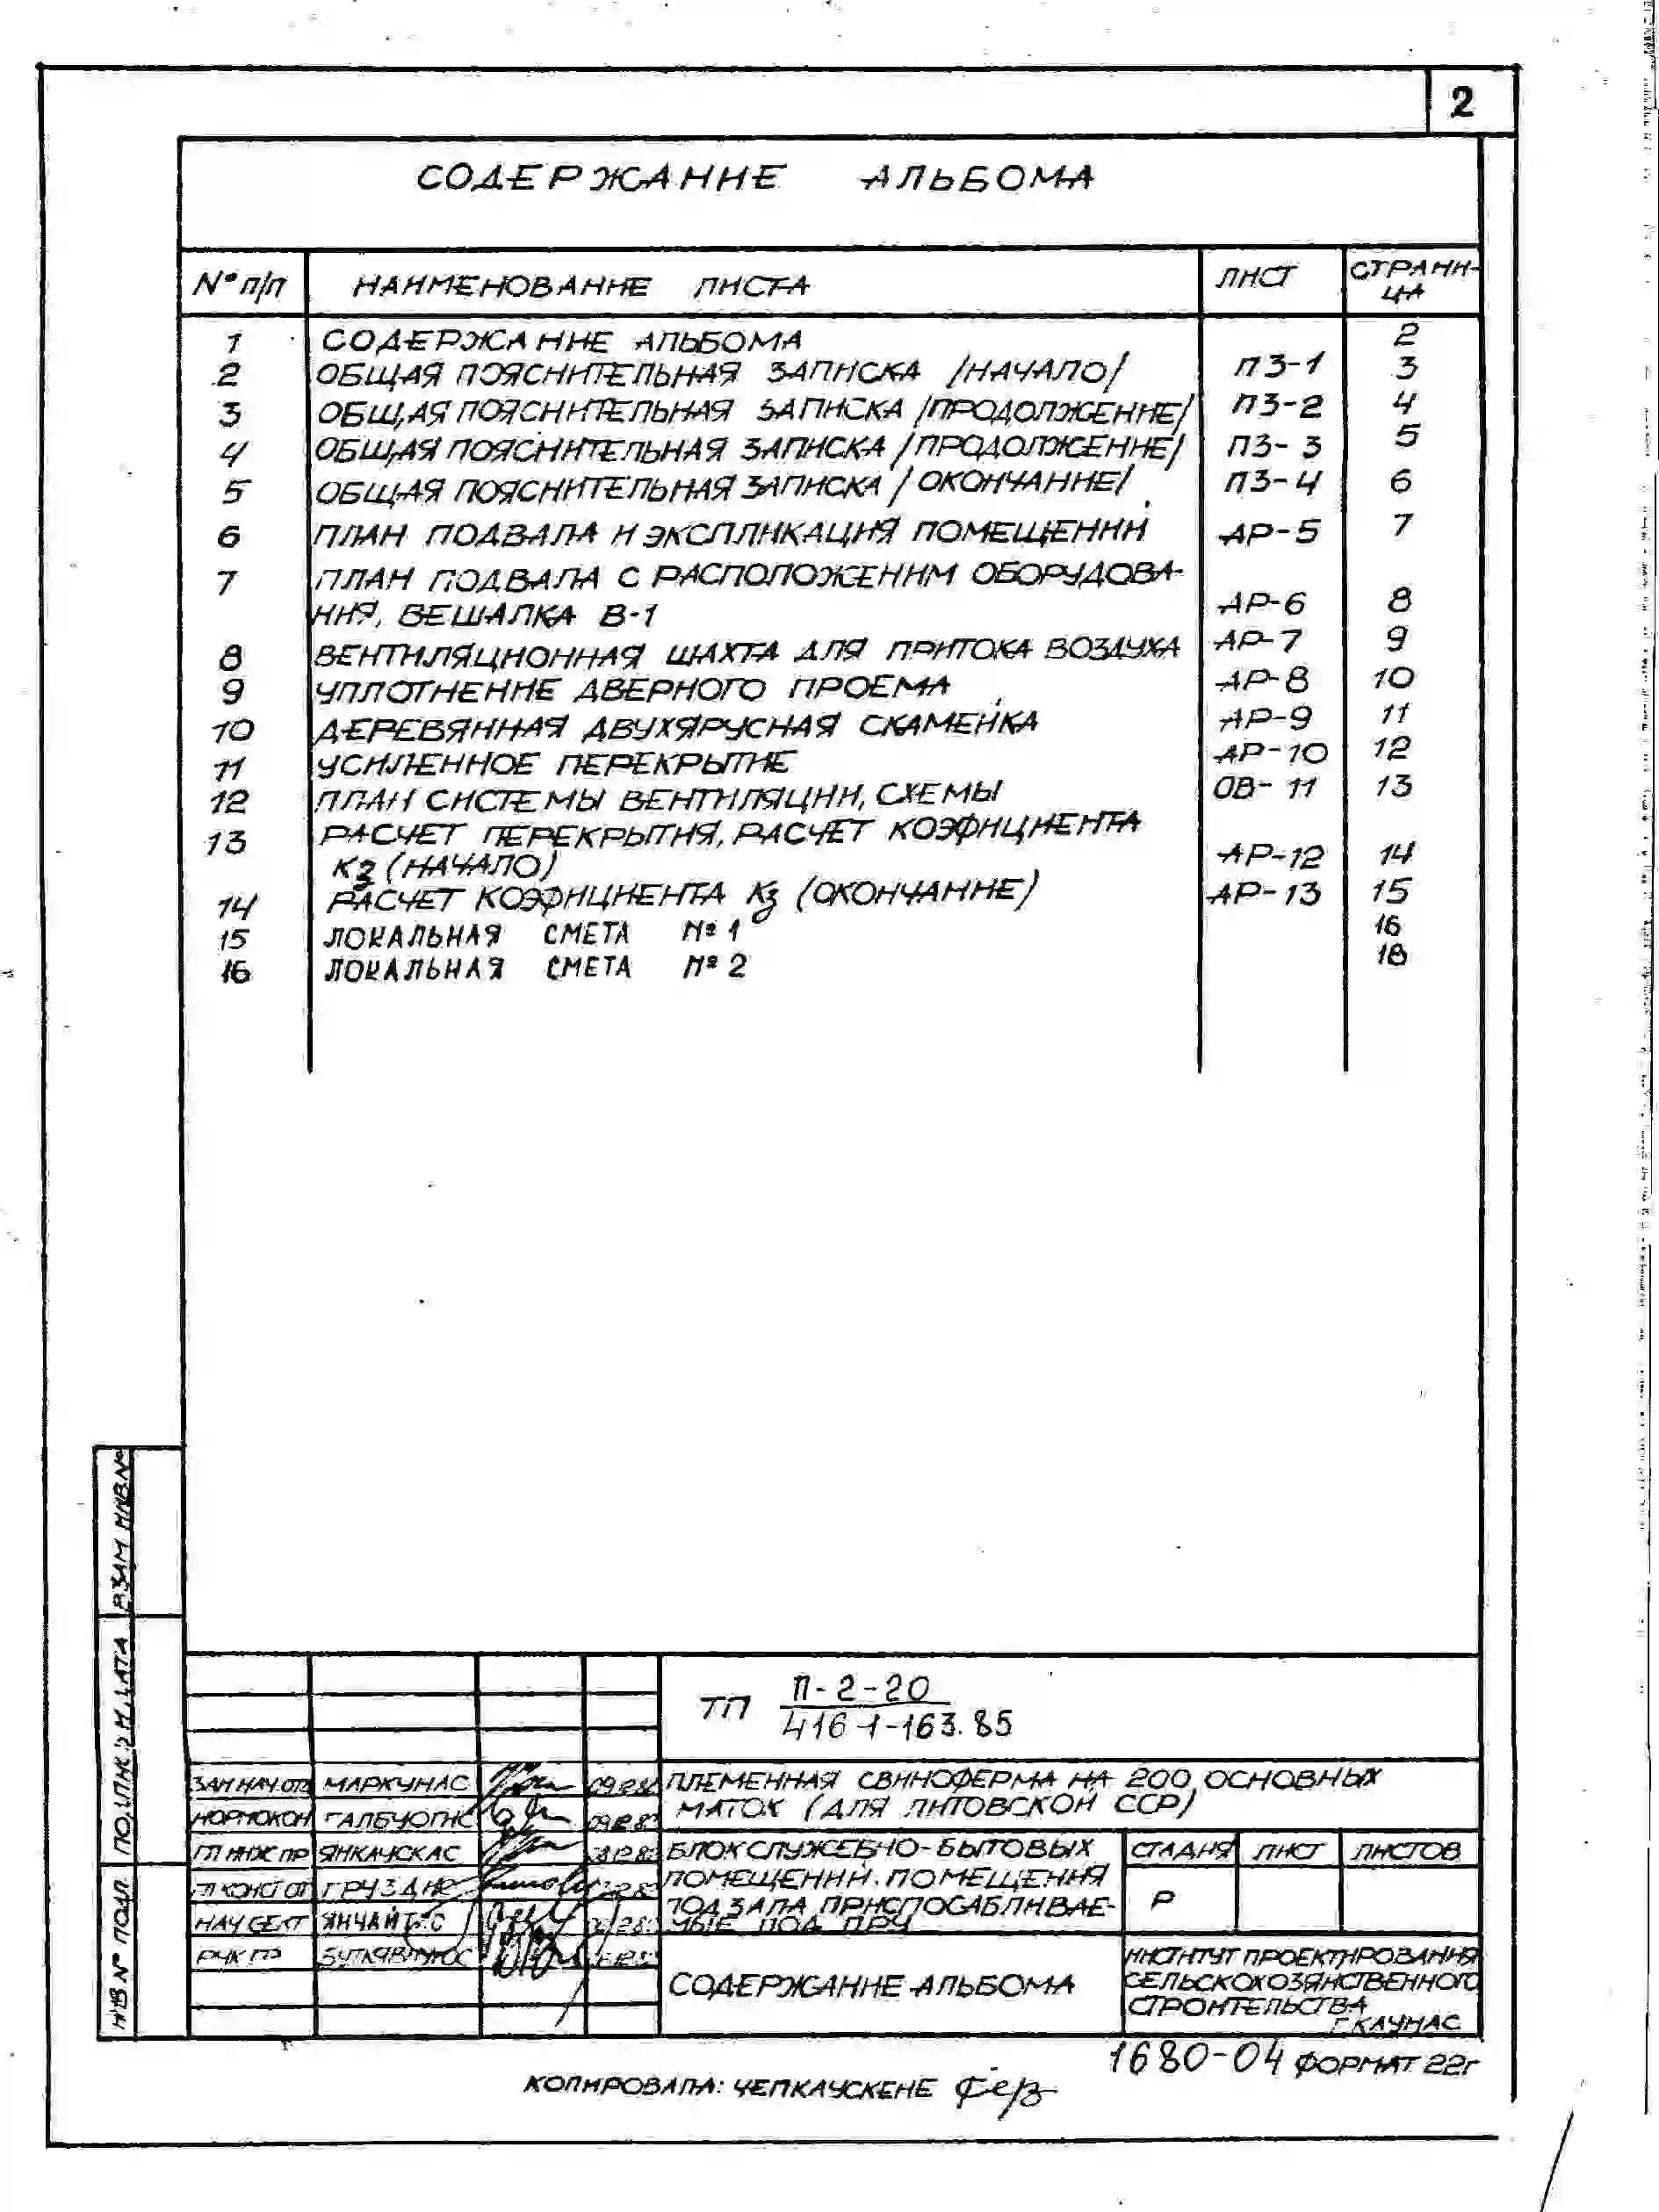 2
СОДЕРЖАНИЕ АЛЬБОМА
№ п/п НАИМЕНОВАНИЕ ЛИСТА ЛИСТ СТРАНИ-
ЦА
1 СОДЕРЖАНИЕ АЛЬБОМА 2
2 ОБЩАЯ ПОЯСНИТЕЛЬНАЯ ЗАПИСКА /НАЧАЛО/ ПЗ-1 3
3 ОБЩАЯ ПОЯСНИТЕЛЬНАЯ ЗАПИСКА /ПРОДОЛЖЕНИЕ/ ПЗ-2 4
4 ОБЩАЯ ПОЯСНИТЕЛЬНАЯ ЗАПИСКА /ПРОДОЛЖЕНИЕ/ ПЗ-3 5
5 ОБЩАЯ ПОЯСНИТЕЛЬНАЯ ЗАПИСКА /ОКОНЧАНИЕ/ ПЗ-4 6
6 ПЛАН ПОДВАЛА И ЭКСПЛИКАЦИЯ ПОМЕЩЕНИЙ АР-5 7
7 ПЛАН ПОДВАЛА С РАСПОЛОЖЕНИМ ОБОРУДОВА-
НИЯ, ВЕШАЛКА В-1 АР-6 8
8 ВЕНТИЛЯЦИОННАЯ ШАХТА ДЛЯ ПРИТОКА ВОЗДУХА АР-7 9
9 УПЛОТНЕНИЕ ДВЕРНОГО ПРОЕМА АР-8 10
10 ДЕРЕВЯННАЯ ДВУХЯРУСНАЯ СКАМЕЙКА АР-9 11
11 УСИЛЕННОЕ ПЕРЕКРЫТИЕ АР-10 12
12 ПЛАН СИСТЕМЫ ВЕНТИЛЯЦИИ, СХЕМЫ ОВ-11 13
13 РАСЧЕТ ПЕРЕКРЫТИЯ, РАСЧЕТ КОЭФИЦИЕНТА
Кз (НАЧАЛО) АР-12 14
14 РАСЧЕТ КОЭФИЦИЕНТА Кз (ОКОНЧАНИЕ) АР-13 15
15 ЛОКАЛЬНАЯ СМЕТА №1 16
16 ЛОКАЛЬНАЯ СМЕТА №2 18
ВЗАМ ИНВ №
ПОДПИС И ДАТА
ИНВ № ПОДЛ
ТП П-2-20
416-1-163.85
ЗАМ НАЧ ОТД МАРКУНАС
НОРМОКОН ГАЛБУОГИС
ГЛ ИНЖ ПР ЯНКАУСКАС
ГЛ КОНСТ ОТ
НАЧ СЕКТ ЯНЧАЙТИС
РУК ГР
ПЛЕМЕННАЯ СВИНОФЕРМА НА 200 ОСНОВНЫХ
МАТОК (ДЛЯ ЛИТОВСКОЙ ССР)
БЛОК СЛУЖЕБНО-БЫТОВЫХ
ПОМЕЩЕНИЙ. ПОМЕЩЕНИЯ
ПОДВАЛА ПРИСПОСАБЛИВАЕ-
МЫЕ ПОД ПРУ
СТАДИЯ ЛИСТ ЛИСТОВ
Р
СОДЕРЖАНИЕ АЛЬБОМА
ИНСТИТУТ ПРОЕКТИРОВАНИЯ
СЕЛЬСКОХОЗЯЙСТВЕННОГО
СТРОИТЕЛЬСТВА
Г.КАУНАС
1680-04 ФОРМАТ 22г
КОПИРОВАЛА: ЧЕПКАУСКЕНЕ